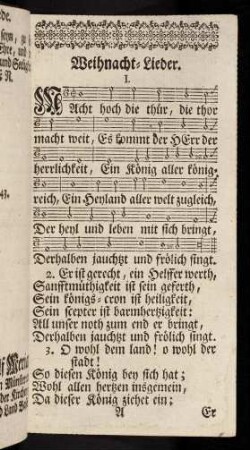 Weihnacht-Lieder.
I.
MAcht hoch die thür, die thor
macht weit, Es kommt der HErr der
herrlichkeit, Ein König aller könig-
reich, Ein Heyland aller welt zugleich,
Der heyl und leben mit sich bringt,
Derhalben jauchtzt und frölich singt.
2. Er ist gerecht, ein Helffer werth,
Sanfftmüthigkeit ist sein geferth,
Sein königs-cron ist heiligkeit,
Sein scepter ist barmhertzigkeit:
All unser noth zum end er bringt,
Derhalben jauchtzt und frölich singt.
3. O wohl dem land! o wohl der
stadt!
So diesen König bey sich hat;
Wohl allen hertzen insgemein,
Da dieser König ziehet ein;
A Er